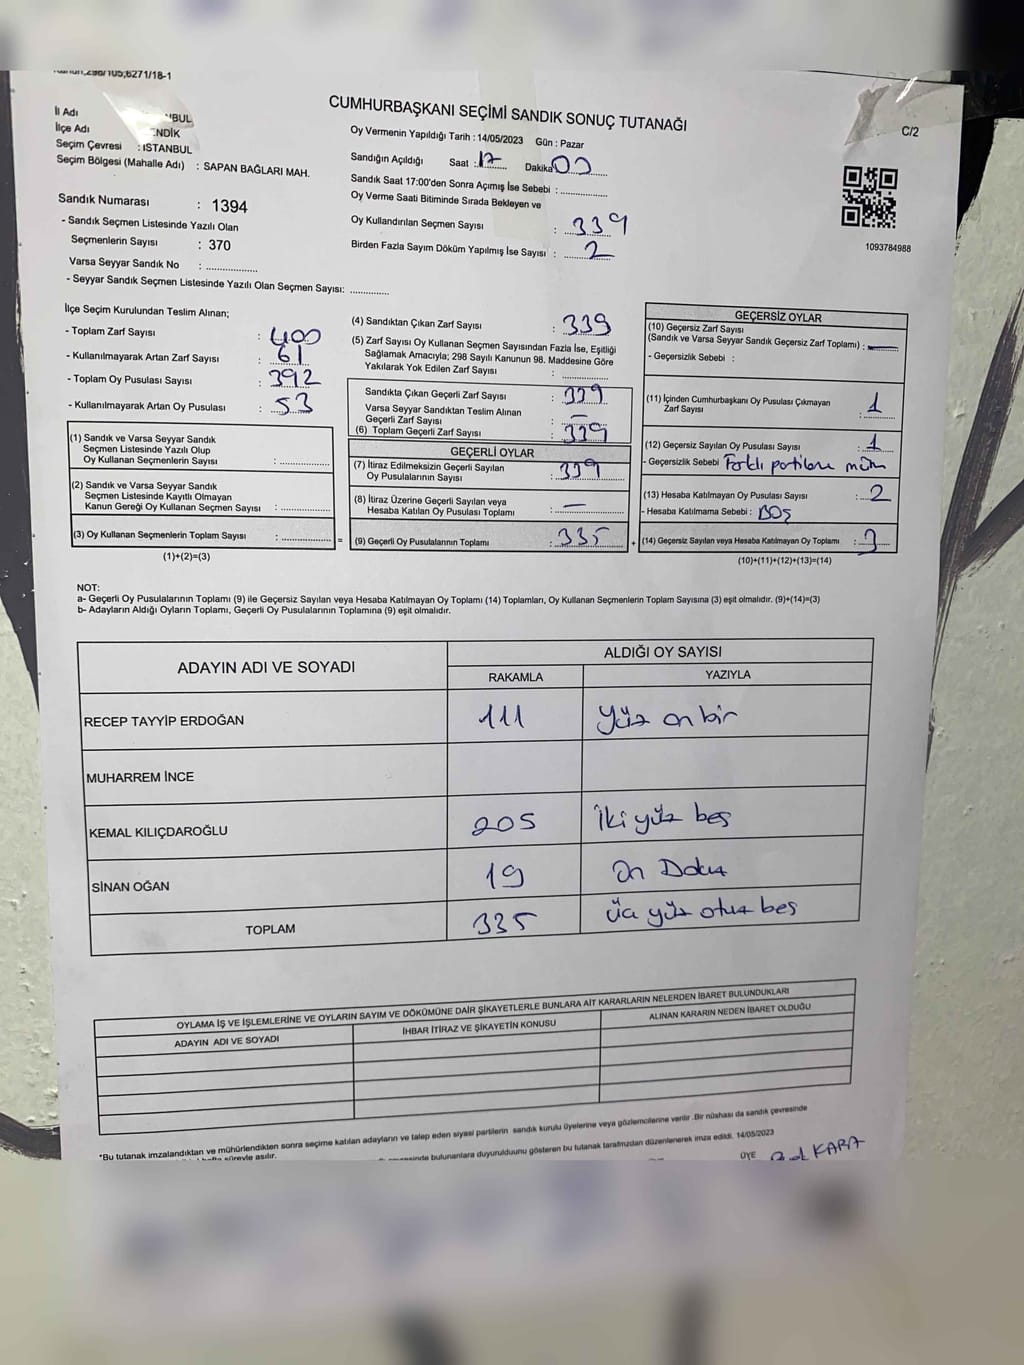 Kanun;298/105;6271/18-1
CUMHURBAŞKANI SEÇİMİ SANDIK SONUÇ TUTANAĞI
C/2
İl Adı BUL
İlçe Adı NDİK
Seçim Çevresi : İSTANBUL
Seçim Bölgesi (Mahalle Adı) : SAPAN BAĞLARI MAH.
Sandık Numarası : 1394
- Sandık Seçmen Listesinde Yazılı Olan
Seçmenlerin Sayısı : 370
Varsa Seyyar Sandık No : ..................
- Seyyar Sandık Seçmen Listesinde Yazılı Olan Seçmen Sayısı: .............
Oy Vermenin Yapıldığı Tarih : 14/05/2023 Gün : Pazar
Sandığın Açıldığı Saat : 17 Dakika 00
Sandık Saat 17:00'den Sonra Açımış İse Sebebi : ................
Oy Verme Saati Bitiminde Sırada Bekleyen ve
Oy Kullandırılan Seçmen Sayısı : 339
Birden Fazla Sayım Döküm Yapılmış İse Sayısı : 2
1093784988
İlçe Seçim Kurulundan Teslim Alınan;
- Toplam Zarf Sayısı : 400
- Kullanılmayarak Artan Zarf Sayısı : 61
- Toplam Oy Pusulası Sayısı : 392
- Kullanılmayarak Artan Oy Pusulası : 53
(1) Sandık ve Varsa Seyyar Sandık
Seçmen Listesinde Yazılı Olup
Oy Kullanan Seçmenlerin Sayısı : ................
(2) Sandık ve Varsa Seyyar Sandık
Seçmen Listesinde Kayıtlı Olmayan
Kanun Gereği Oy Kullanan Seçmen Sayısı : ................
(3) Oy Kullanan Seçmenlerin Toplam Sayısı : ................ =
(1)+(2)=(3)
(4) Sandıktan Çıkan Zarf Sayısı : 339
(5) Zarf Sayısı Oy Kullanan Seçmen Sayısından Fazla İse, Eşitliği
Sağlamak Amacıyla; 298 Sayılı Kanunun 98. Maddesine Göre
Yakılarak Yok Edilen Zarf Sayısı : ................
Sandıkta Çıkan Geçerli Zarf Sayısı : 339
Varsa Seyyar Sandıktan Teslim Alınan
Geçerli Zarf Sayısı : —
(6) Toplam Geçerli Zarf Sayısı : 339
GEÇERLİ OYLAR
(7) İtiraz Edilmeksizin Geçerli Sayılan
Oy Pusulalarının Sayısı : 339
(8) İtiraz Üzerine Geçerli Sayılan veya
Hesaba Katılan Oy Pusulası Toplamı : —
(9) Geçerli Oy Pusulalarının Toplamı : 335 +
GEÇERSİZ OYLAR
(10) Geçersiz Zarf Sayısı
(Sandık ve Varsa Seyyar Sandık Geçersiz Zarf Toplamı) : —
- Geçersizlik Sebebi :
(11) İçinden Cumhurbaşkanı Oy Pusulası Çıkmayan
Zarf Sayısı : 1
(12) Geçersiz Sayılan Oy Pusulası Sayısı : 1
- Geçersizlik Sebebi Farklı partilere
(13) Hesaba Katılmayan Oy Pusulası Sayısı : 2
- Hesaba Katılmama Sebebi : BOŞ
(14) Geçersiz Sayılan veya Hesaba Katılmayan Oy Toplamı : 3
(10)+(11)+(12)+(13)=(14)
NOT:
a- Geçerli Oy Pusulalarının Toplamı (9) ile Geçersiz Sayılan veya Hesaba Katılmayan Oy Toplamı (14) Toplamları, Oy Kullanan Seçmenlerin Toplam Sayısına (3) eşit olmalıdır. (9)+(14)=(3)
b- Adayların Aldığı Oyların Toplamı, Geçerli Oy Pusulalarının Toplamına (9) eşit olmalıdır.
ADAYIN ADI VE SOYADI
ALDIĞI OY SAYISI
RAKAMLA YAZIYLA
RECEP TAYYİP ERDOĞAN 111 Yüz on bir
MUHARREM İNCE
KEMAL KILIÇDAROĞLU 205 İki yüz beş
SİNAN OĞAN 19 On Dokuz
TOPLAM 335 üç yüz otuz beş
OYLAMA İŞ VE İŞLEMLERİNE VE OYLARIN SAYIM VE DÖKÜMÜNE DAİR ŞİKAYETLERLE BUNLARA AİT KARARLARIN NELERDEN İBARET BULUNDUKLARI
ADAYIN ADI VE SOYADI İHBAR İTİRAZ VE ŞİKAYETİN KONUSU ALINAN KARARIN NEDEN İBARET OLDUĞU
*Bu tutanak imzalandıktan ve mühürlendikten sonra seçime katılan adayların ve talep eden siyasi partilerin sandık kurulu üyelerine veya gözlemcilerine verilir .Bir nüshası da sandık çevresinde
hafta süreyle asılır.
çevresinde bulunanlara duyurulduunu gösteren bu tutanak tarafımızdan düzenlenerek imza edildi. 14/05/2023
ÜYE
KARA